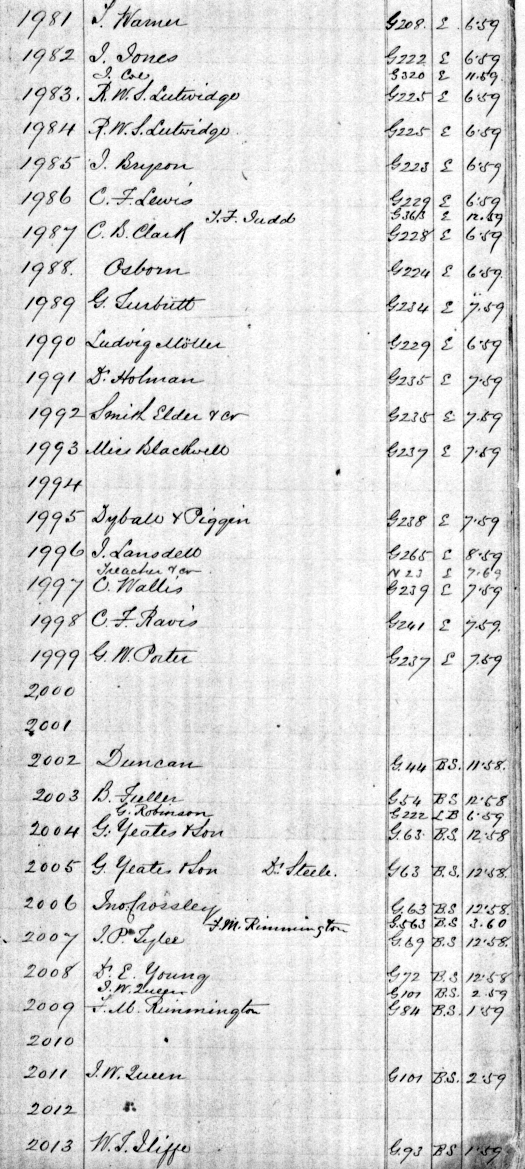 1981 J. Warner G208. E 6.59
1982 J. Jones G222 E 6.59
J. Coe G320 E 11.59
1983. R.W.S. Lutwidge G225 E 6.59
1984 R.W.S. Lutwidge G225 E 6.59
1985 J. Bryson G223 E 6.59
1986 C. F. Lewis G229 E 6.59
J. F. Judd G363 E 12.59
1987 C. B. Clark G228 E 6.59
1988. Osborn G224 E 6.59
1989 G. Surbutt G234 E 7.59
1990 Ludvig Möller G229 E 6.59
1991 Dr Holman G235 E 7.59
1992 Smith Elder & Co G235 E 7.59
1993 Miss Blackwell G237 E 7.59
1994
1995 Dyball & Piggin G238 E 7.59
1996 J. Lansdell G265 E 8.59
Treacher & Co N 23 E 7.69
1997 O. Wallis G239 E 7.59
1998 C. F. Ravis G241 E 7.59
1999 G. W. Porter G237 E 7.59
2000
2001
2002 Duncan G.44 B.S. 11.58.
2003 B. Fuller G54 B.S 12.58
G. Robinson G222 L B 6.59
2004 G. Yeates & Son G.63 B.S. 12.58
2005 G. Yeates & Son Dr Steele. G63 B.S. 12.58.
2006 Jno Crossley G.63 B.S 12.58.
F. M. Rimmington G.563 B.S 3.60
2007 J. P. Tylee G69 B.S 12.58.
2008 Dr. E. Young G72 B.S 12.58
J. W. Queen G101 B.S. 2.59
2009 F. M. Rimmington G84 B.S. 1.59
2010
2011 J. W. Queen G101 B.S. 2.59
2012
2013 W. T. Iliffe G.93 B.S 1.59